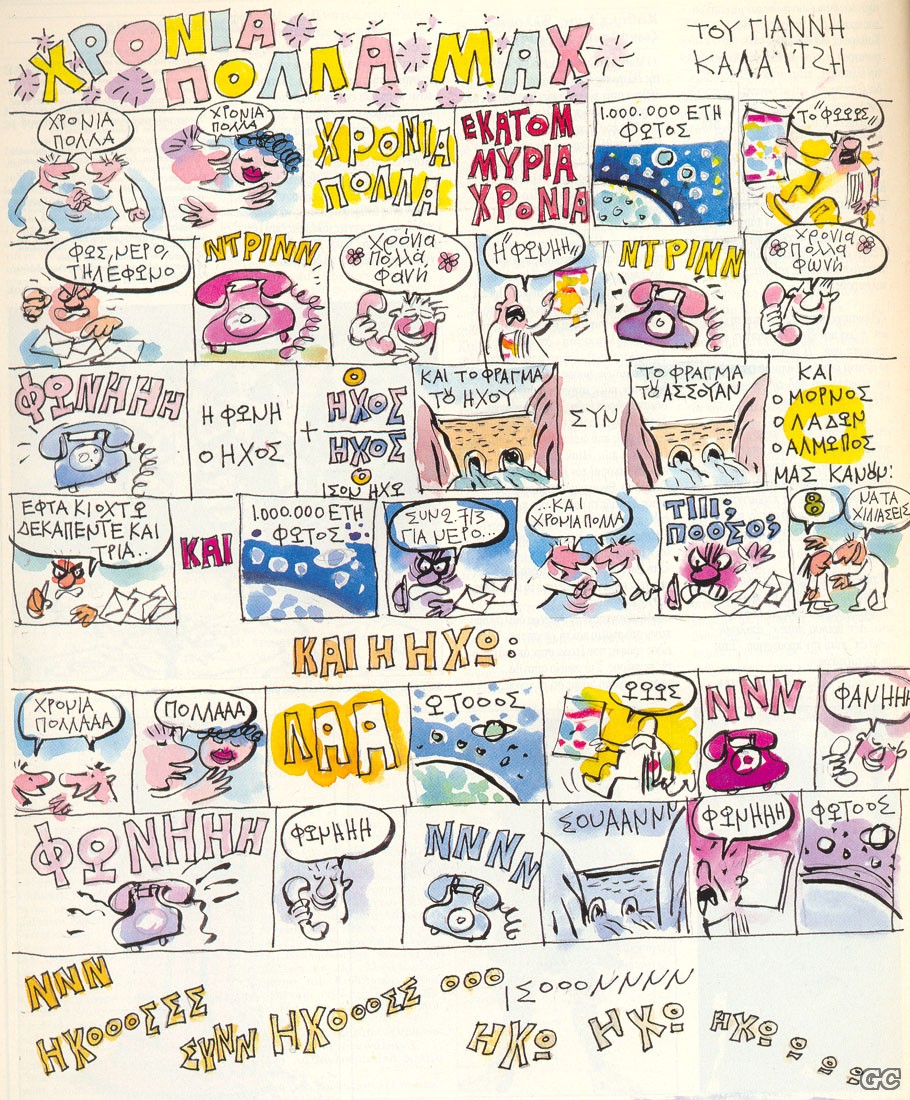 ΧΡΟΝΙΑ
ΠΟΛΛΑ ΜΑΧ
ΤΟΥ ΓΙΑΝΝΗ
ΚΑΛΑΪΤΖΗ
ΧΡΟΝΙΑ
ΠΟΛΛΑ
ΧΡΟΝΙΑ
ΠΟΛΛΑ
ΧΡΟΝΙΑ
ΠΟΛΛΑ
ΕΚΑΤΟΜ
ΜΥΡΙΑ
ΧΡΟΝΙΑ
1.000.000 ΕΤΗ
ΦΩΤΟΣ
ΤΟ "ΦΩΩΩΣ"
ΦΩΣ, ΝΕΡΟ,
ΤΗΛΕΦΩΝΟ
ΝΤΡΙΝΝ
Χρόνια
Πολλά
φανή
Η "ΦΩΝΗ"
ΝΤΡΙΝΝ
Χρόνια
Πολλά
φωνή
ΦΩΝΗΗΗ
Η ΦΩΝΗ
Ο ΗΧΟΣ
+
Ο
ΗΧΟΣ
ΗΧΟΣ
Ο
ΙΣΟΝ ΗΧΩ
ΚΑΙ ΤΟ ΦΡΑΓΜΑ
ΤΟΥ ΗΧΟΥ
ΣΥΝ
ΤΟ ΦΡΑΓΜΑ
ΤΟΥ ΑΣΣΟΥΑΝ
ΚΑΙ
Ο ΜΟΡΝΟΣ
Ο ΛΑΔΩΝ
Ο ΑΛΜΩΠΟΣ
ΜΑΣ ΚΑΝΟΥΝ:
ΕΦΤΑ ΚΙ ΟΧΤΩ
ΔΕΚΑΠΕΝΤΕ ΚΑΙ
ΤΡΙΑ...
ΚΑΙ
1.000.000 ΕΤΗ
ΦΩΤΟΣ
ΣΥΝ 2.713
ΓΙΑ ΝΕΡΟ...
...ΚΑΙ
ΧΡΟΝΙΑ ΠΟΛΛΑ
ΤΙΙΙ;
ΠΟΟΣΟ;
8
ΝΑ ΤΑ
ΧΙΛΙΑΣΕΙΣ
ΚΑΙ Η ΗΧΩ:
ΧΡΟΝΙΑ
ΠΟΛΛΑΑΑ
ΠΟΛΛΑΑΑ
ΛΑΑ
ΩΤΟΟΟΣ
ΩΩΩΣ
ΝΝΝ
ΦΑΝΗΗΗ
ΦΩΝΗΗΗ
ΦΩΝΗΗΗ
ΝΝΝΝ
ΣΟΥΑΑΝΝΝ
ΦΩΝΗΗΗ
ΦΩΤΟΟΣ
ΝΝΝ
ΗΧΟΟΟΣΣΣ
ΣΥΝΝ ΗΧΟΟΟΣΣ ΟΟΟ
ΙΣΟΟΟΝΝΝΝ
ΗΧΩ ΗΧΩ ΗΧΩ Ω Ω Ω
GC